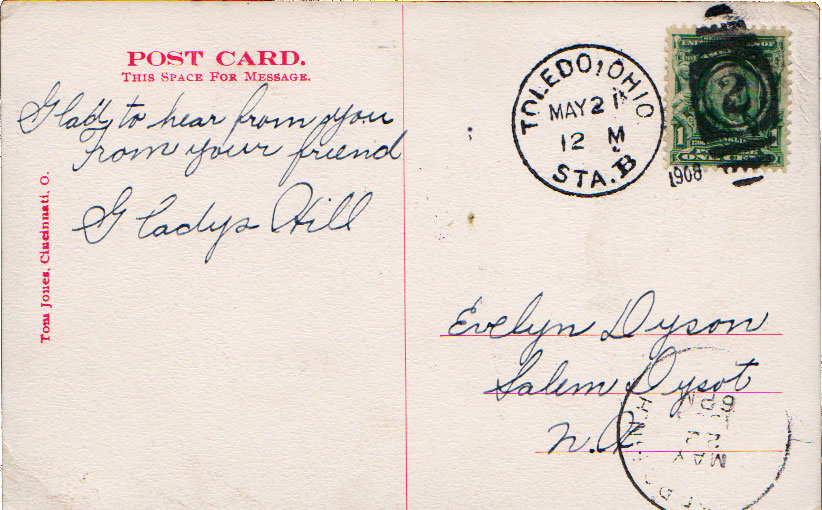 POST CARD.
THIS SPACE FOR MESSAGE.
Glad to hear from you
From your friend
Gladys Hill
Tom Jones, Cincinnati, O.
TOLEDO, OHIO
MAY 21
12 M
STA. B
1908
2
1
ONE
Evelyn Dyson
Salem Dysot
N.
MAY
22